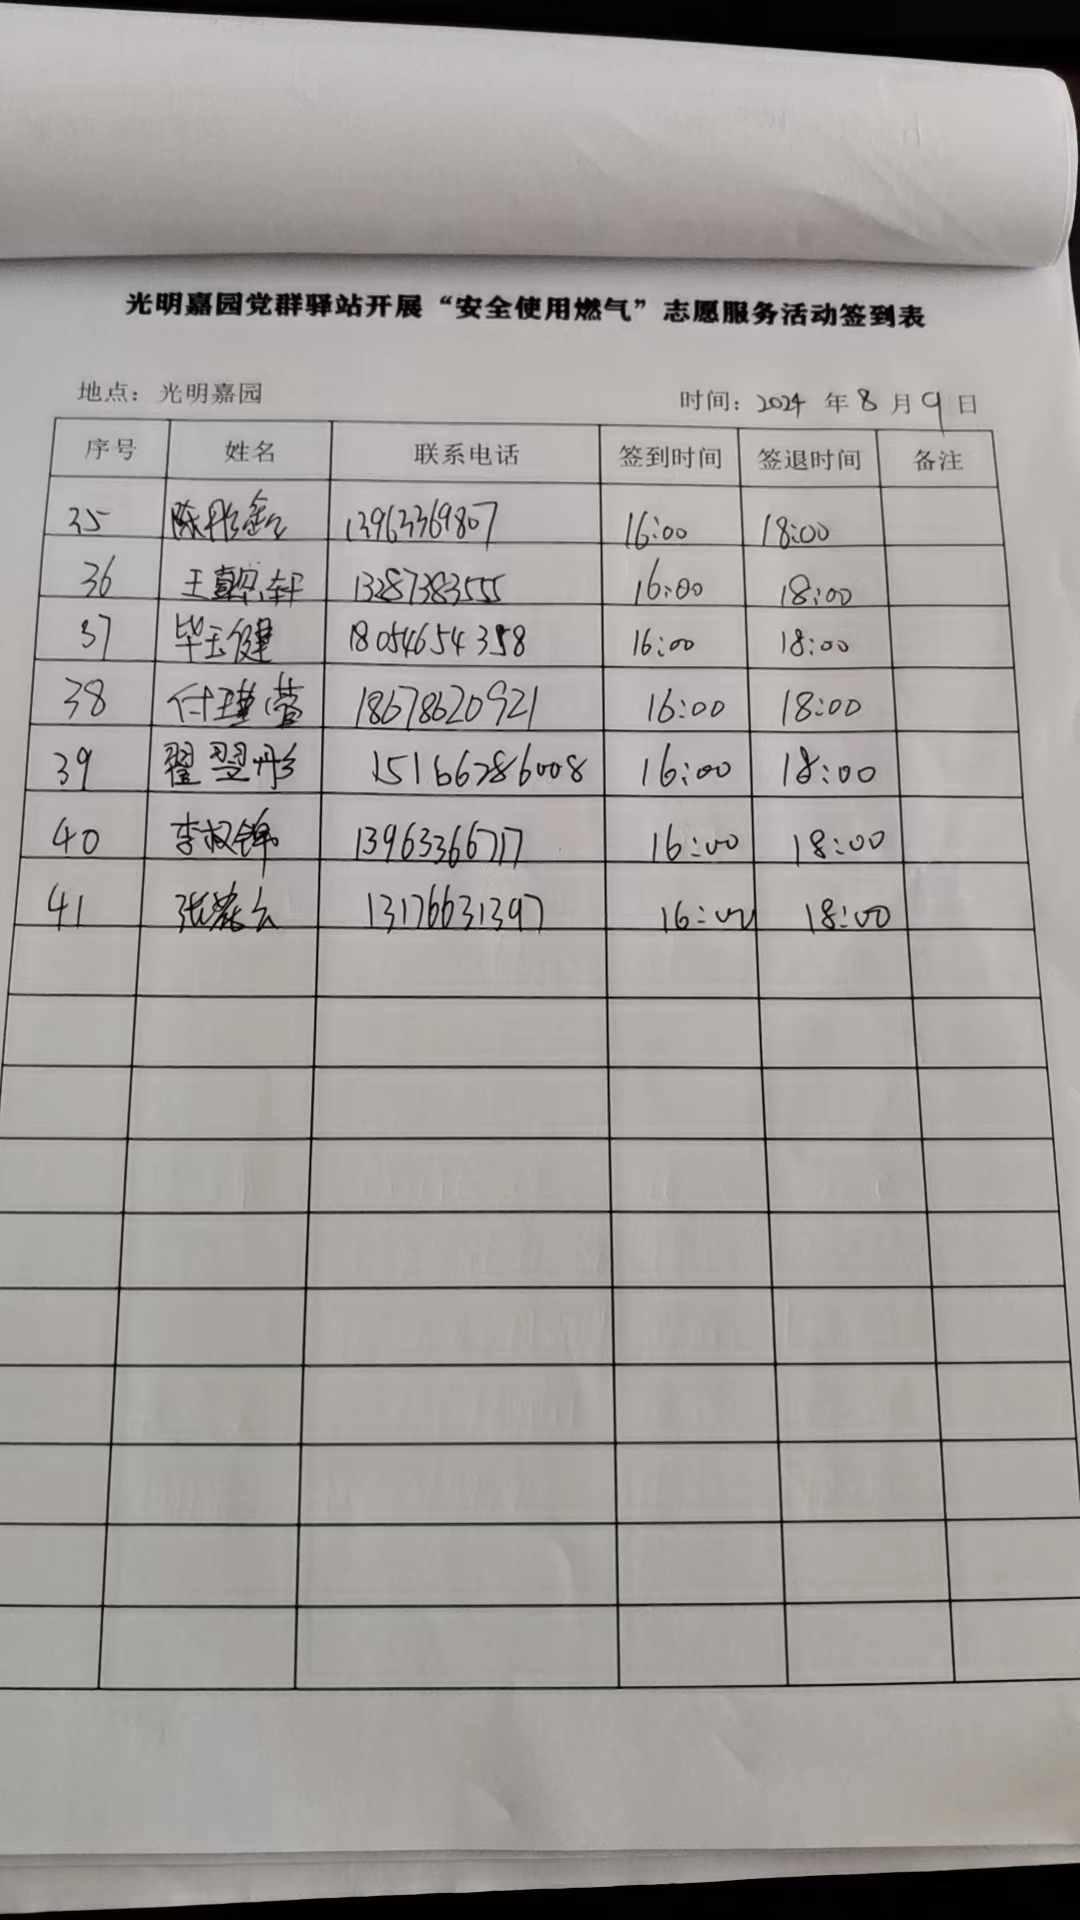 光明嘉园党群驿站开展“安全使用燃气”志愿服务活动签到表
地点：光明嘉园 时间：2024 年 8 月 9 日
序号 姓名 联系电话 签到时间 签退时间 备注
35 陈 13963369807 16:00 18:00
36 王懿轩 13287383555 16:00 18:00
37 毕玉健 18054654358 16:00 18:00
38 付瑾萱 18678620921 16:00 18:00
39 翟翌彤 15166286008 16:00 18:00
40 李权锦 13963366717 16:00 18:00
41 张 13176631397 16:00 18:00